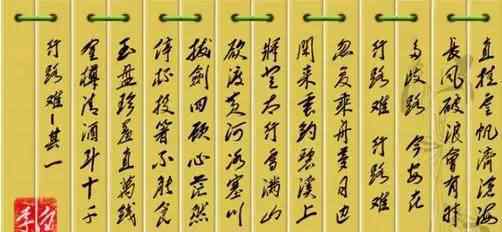 行路难-其一
金樽清酒斗十千
玉盘珍羞直萬钱
停杯投箸不能食
拔劍四顾心茫然
欲渡黄河冰塞川
将登太行雪满山
闲来垂钓碧溪上
忽复乘舟梦日边
行路难 行路难
多歧路 今安在
長風破浪會有时
直挂雲帆濟滄海